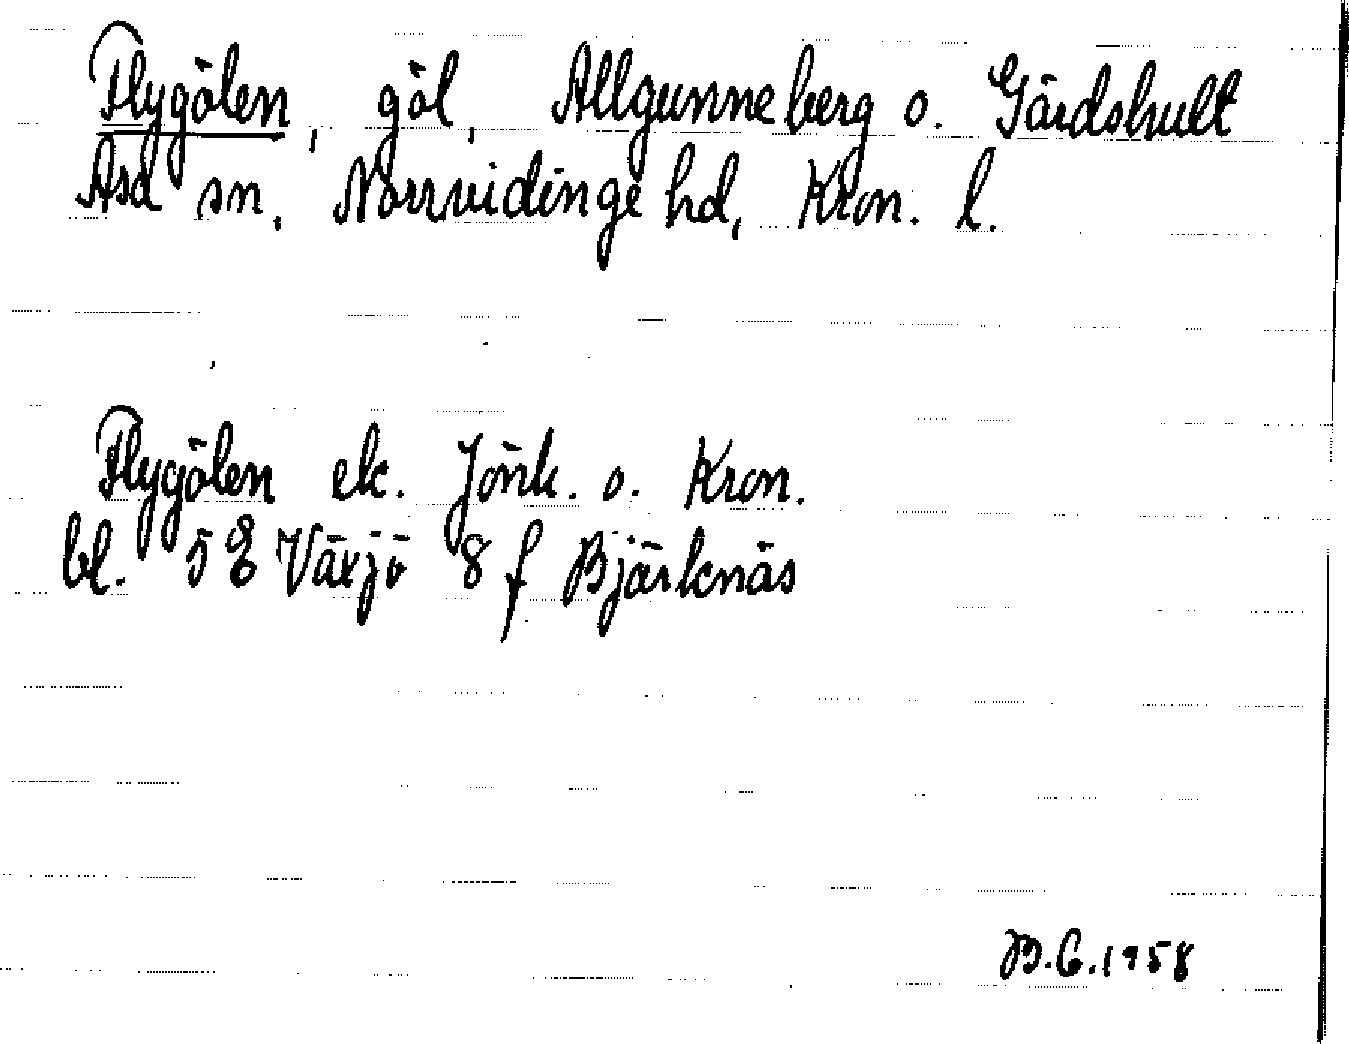 Flygölen, göl, Allgunneberg o. Gårdshult
Asa sn, Norrvidinge hd, Kron. l.
Flygölen ek. Jönk. o. Kron.
bl. 5 E Växjö 8 f Björknäs
B.C. 1958